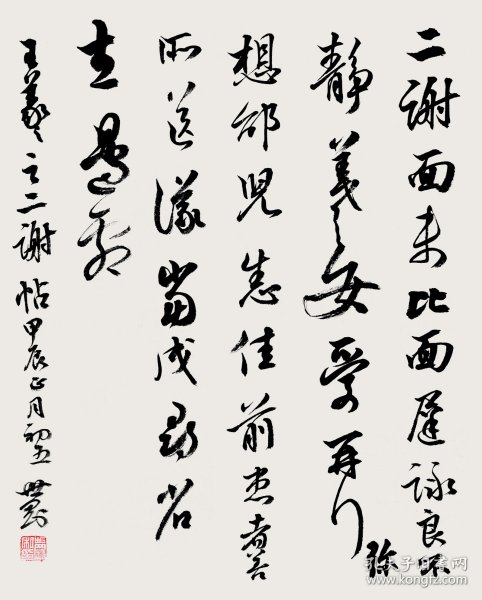 二謝面未比面遲詠良不
靜羲之女愛再拜
想邵兒悉佳前患者善
所送議當成尋省
左邊劇
王羲之二謝帖甲辰正月初五
孔夫子旧书网
kongfz.com